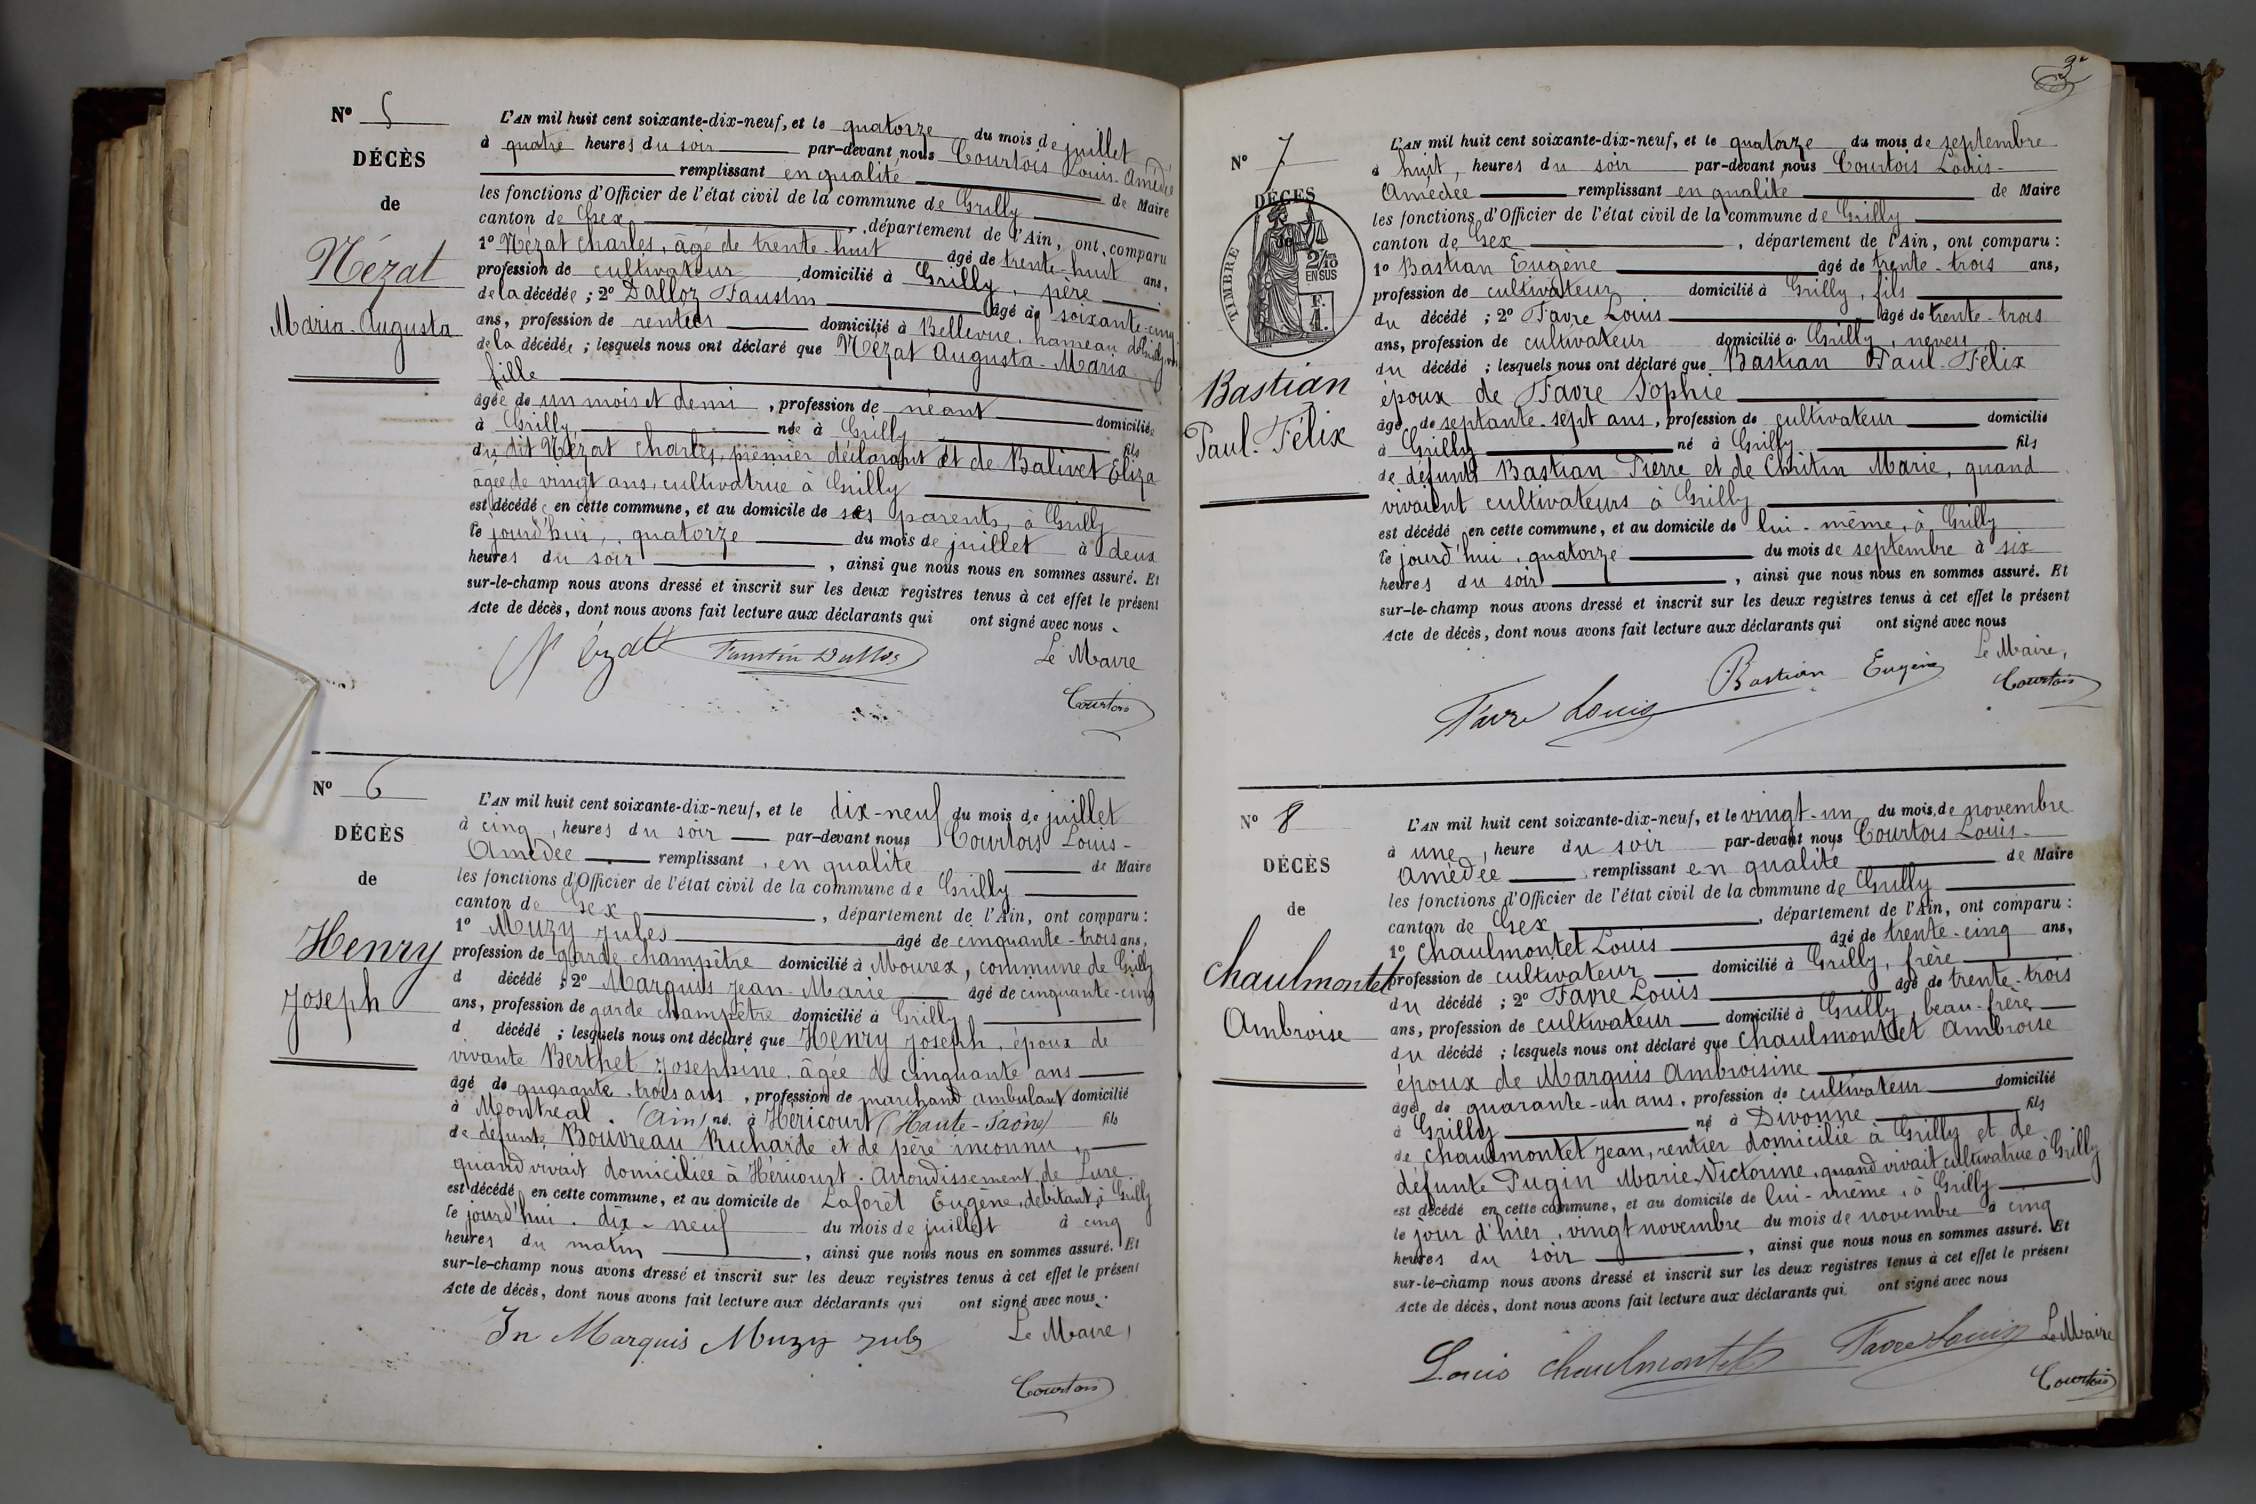 N° 5
DÉCÈS
de
Nézat
Maria-Augusta
L'AN mil huit cent soixante-dix-neuf, et le quatorze du mois de juillet
à quatre heures du soir par-devant nous Courtois Louis-Amédée
remplissant en qualité de Maire
les fonctions d'Officier de l'état civil de la commune de Grilly
canton de Gex, département de l'Ain, ont comparu
1° Nézat Charles, âgé de trente-huit âgé de trente-huit ans,
profession de cultivateur domicilié à Grilly, père
de la décédée ; 2° Dalloz Faustin âgé de soixante-cinq
ans, profession de rentier domicilié à Bellevue, hameau de Grilly
de la décédée ; lesquels nous ont déclaré que Nézat Augusta-Maria
fille
âgée de un mois et demi, profession de néant domiciliée
à Grilly, née à Grilly fils
du dit Nézat Charles, premier déclarant et de Balivet Eliza
âgée de vingt ans, cultivatrice à Grilly
est décédée en cette commune, et au domicile de ses parents, à Grilly
le jourd'hui, quatorze du mois de juillet à deux
heures du soir, ainsi que nous nous en sommes assuré. Et
sur-le-champ nous avons dressé et inscrit sur les deux registres tenus à cet effet le présent
Acte de décès, dont nous avons fait lecture aux déclarants qui ont signé avec nous.
Nézat Faustin Dalloz Le Maire
Courtois
N° 6
DÉCÈS
de
Henry
Joseph
L'AN mil huit cent soixante-dix-neuf, et le dix-neuf du mois de juillet
à cinq, heures du soir par-devant nous Courtois Louis-
Amédée remplissant, en qualité de Maire
les fonctions d'Officier de l'état civil de la commune de Grilly
canton de Gex, département de l'Ain, ont comparu :
1° Muzy Jules âgé de cinquante-trois ans,
profession de garde champêtre domicilié à Mourex, commune de Grilly
d décédé ; 2° Marquis Jean-Marie âgé de cinquante-cinq
ans, profession de garde champêtre domicilié à Grilly
d décédé ; lesquels nous ont déclaré que Henry Joseph, époux de
vivante Berthet Josephine, âgée de cinquante ans
âgé de quarante-trois ans, profession de marchand ambulant domicilié
à Montréal (Ain) né à Héricourt (Haute-Saône) fils
de défunte Bouvreau Richarde et de père inconnu,
quand vivait domiciliée à Héricourt. Arrondissement de Lure
est décédé en cette commune, et au domicile de Laforêt Eugène, débitant à Grilly
le jourd'hui, dix-neuf du mois de juillet à cinq
heures du matin, ainsi que nous nous en sommes assuré. Et
sur-le-champ nous avons dressé et inscrit sur les deux registres tenus à cet effet le présent
Acte de décès, dont nous avons fait lecture aux déclarants qui ont signé avec nous.
Jn Marquis Muzy Jules Le Maire,
Courtois
3
N° 7
DÉCÈS
de
TIMBRE
2/10
EN SUS
Bastian
Paul-Félix
L'AN mil huit cent soixante-dix-neuf, et le quatorze du mois de septembre
à huit, heures du soir par-devant nous Courtois Louis-
Amédée remplissant en qualité de Maire
les fonctions d'Officier de l'état civil de la commune de Grilly
canton de Gex, département de l'Ain, ont comparu :
1° Bastian Eugène âgé de trente-trois ans,
profession de cultivateur domicilié à Grilly, fils
du décédé ; 2° Favre Louis âgé de trente-trois
ans, profession de cultivateur domicilié à Grilly, neveu
du décédé ; lesquels nous ont déclaré que Bastian Paul-Félix
époux de Favre Sophie
âgé de septante-sept ans, profession de cultivateur domicilié
à Grilly né à Grilly fils
de défunts Bastian Pierre et de Chritin Marie, quand
vivaient cultivateurs à Grilly
est décédé en cette commune, et au domicile de lui-même, à Grilly
le jourd'hui, quatorze du mois de septembre à six
heures du soir, ainsi que nous nous en sommes assuré. Et
sur-le-champ nous avons dressé et inscrit sur les deux registres tenus à cet effet le présent
Acte de décès, dont nous avons fait lecture aux déclarants qui ont signé avec nous
Le Maire,
Favre Louis Bastian Eugène Courtois
N° 8
DÉCÈS
de
Chaulmontet
Ambroise
L'AN mil huit cent soixante-dix-neuf, et le vingt-un du mois de novembre
à une, heure du soir par-devant nous Courtois Louis-
Amédée remplissant en qualité de Maire
les fonctions d'Officier de l'état civil de la commune de Grilly
canton de Gex, département de l'Ain, ont comparu :
1° Chaulmontet Louis âgé de trente-cinq ans,
profession de cultivateur domicilié à Grilly, frère
du décédé ; 2° Favre Louis âgé de trente-trois
ans, profession de cultivateur domicilié à Grilly, beau-frère
du décédé ; lesquels nous ont déclaré que Chaulmontet Ambroise
époux de Marquis Ambroisine
âgé de quarante-un ans, profession de cultivateur domicilié
à Grilly né à Divonne fils
de Chaulmontet Jean, rentier domicilié à Grilly et de
défunte Pugin Marie-Victorine, quand vivait cultivatrice à Grilly
est décédé en cette commune, et au domicile de lui-même, à Grilly
le jour d'hier, vingt novembre du mois de novembre à cinq
heures du soir, ainsi que nous nous en sommes assuré. Et
sur-le-champ nous avons dressé et inscrit sur les deux registres tenus à cet effet le présent
Acte de décès, dont nous avons fait lecture aux déclarants qui ont signé avec nous
Louis Chaulmontet Favre Louis Le Maire
Courtois